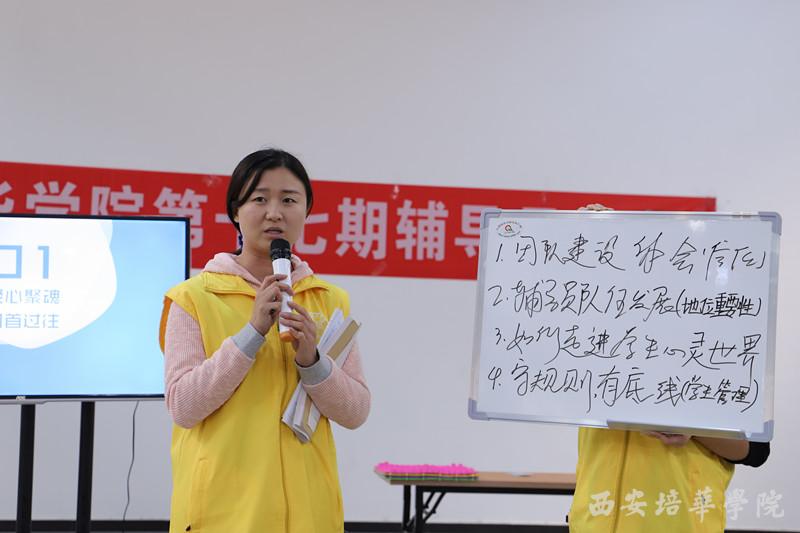 学院第十七期辅导
01
心聚魂
首过往
1.团队建设 体会(信任)
2.辅导员队伍发展(地位重要性)
3.如何走进学生心灵世界
4.守规则,有底线(学生管理)
西安培華學院